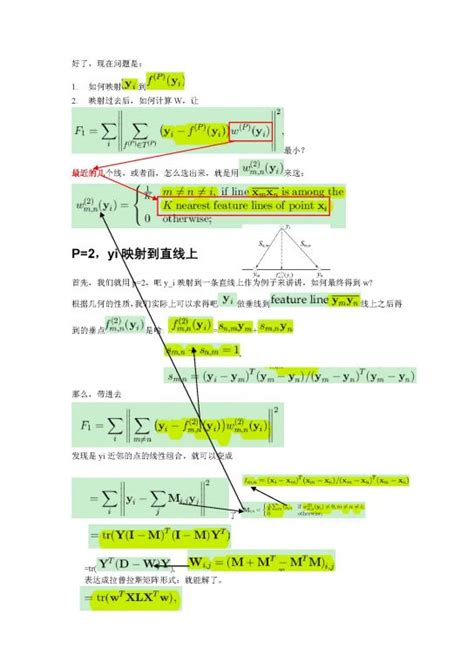 好了，现在问题是：
1. 如何映射 y_i 到 f^{(P)}(y_i)
2. 映射过去后，如何计算 W，让
F_1 = ∑_i ‖ ∑_{f^{(P)}∈T^{(P)}} (y_i − f^{(P)}(y_i)) w^{(P)}(y_i) ‖^2 , 最小？
最近的几个线，或者面，怎么选出来，就是用 w^{(2)}_{m,n}(y_i) 来选：
w^{(2)}_{m,n}(y_i) = { 1/K m ≠ n ≠ i, if line x_m x_n is among the
K nearest feature lines of point x_i
0 otherwise;
P=2，yi 映射到直线上
y_i
S_{n,m} S_{m,n}
y_m f^{(2)}_{m,n}(y_i) y_n
首先，我们就用 p=2，吧 y_i 映射到一条直线上作为例子来讲讲，如何最终得到 w?
根据几何的性质，我们实际上可以求得吧 y_i 做垂线到 feature line y_m y_n 线上之后得
到的垂点 f^{(2)}_{m,n}(y_i) 是啥 f^{(2)}_{m,n}(y_i) = s_{n,m}y_m + s_{m,n}y_n
s_{m,n} + s_{n,m} = 1
s_{m,n} = (y_i − y_m)^T (y_n − y_m)/(y_n − y_m)^T (y_n − y_m)
那么，带进去
F_1 = ∑_i ‖ ∑_{m≠n} (y_i − f^{(2)}_{m,n}(y_i)) w^{(2)}_{m,n}(y_i) ‖^2
发现是 yi 近邻的点的线性组合，就可以变成
= ∑_i ‖ y_i − ∑_j M_{i,j} y_j ‖^2
= tr(Y(I − M)^T (I − M)Y^T)
=tr( Y^T(D − W)Y ), W_{i,j} = (M + M^T − M^T M)_{i,j}
表达成拉普拉斯矩阵形式：就能解了。
= tr(w^T XLX^T w),